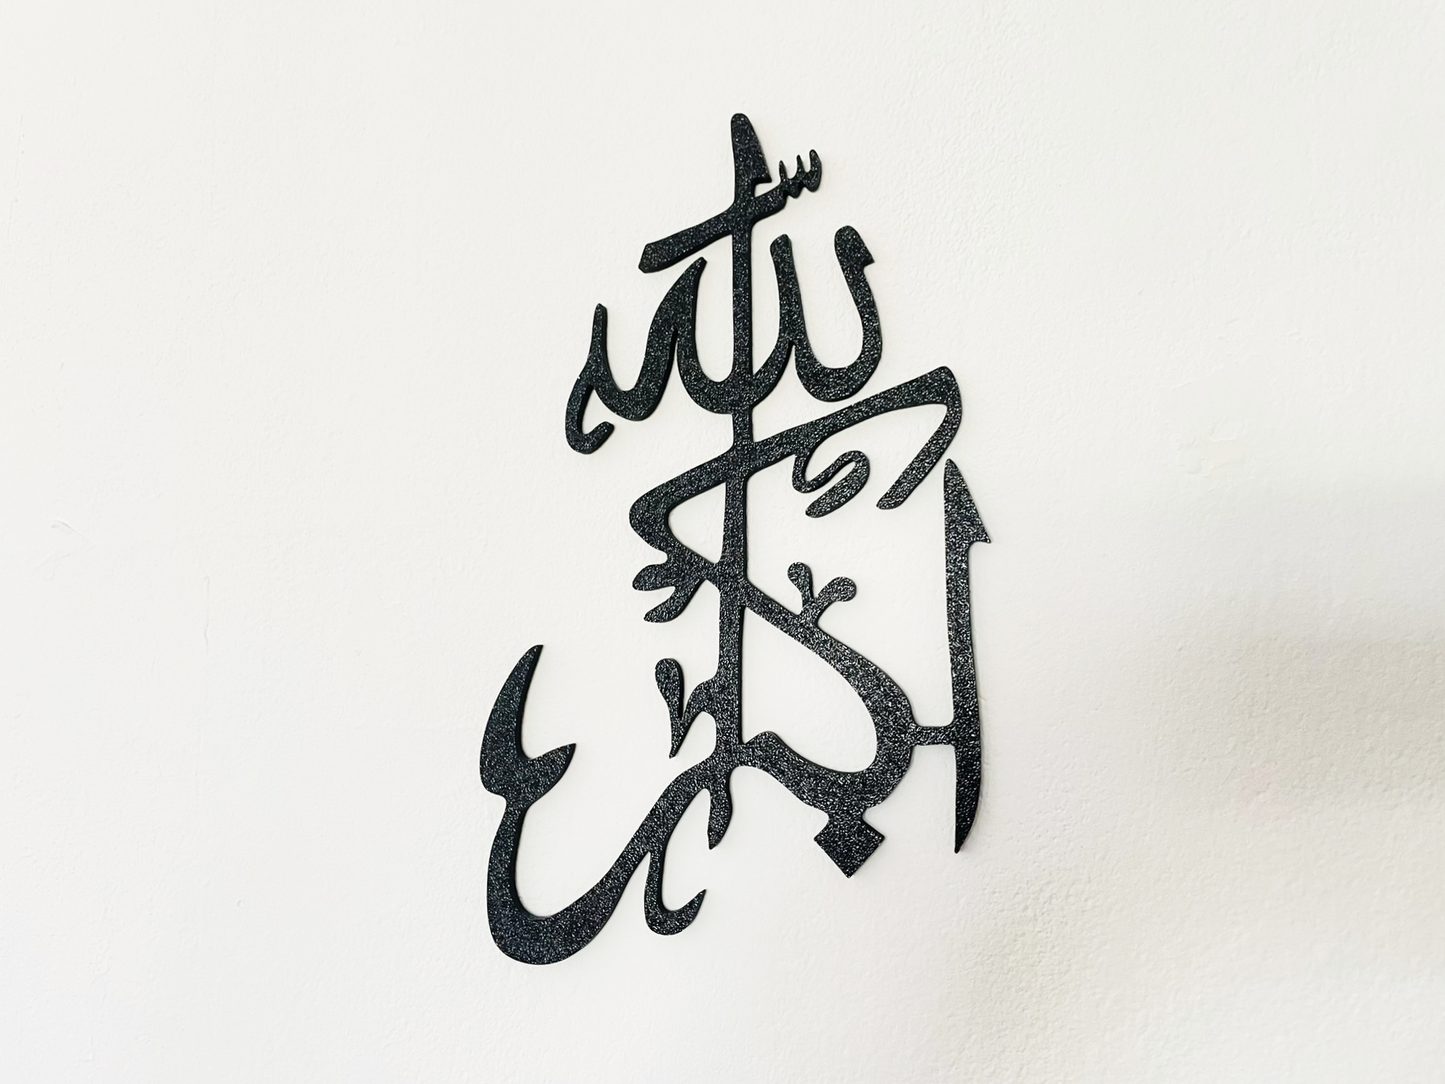 الله
اكبر